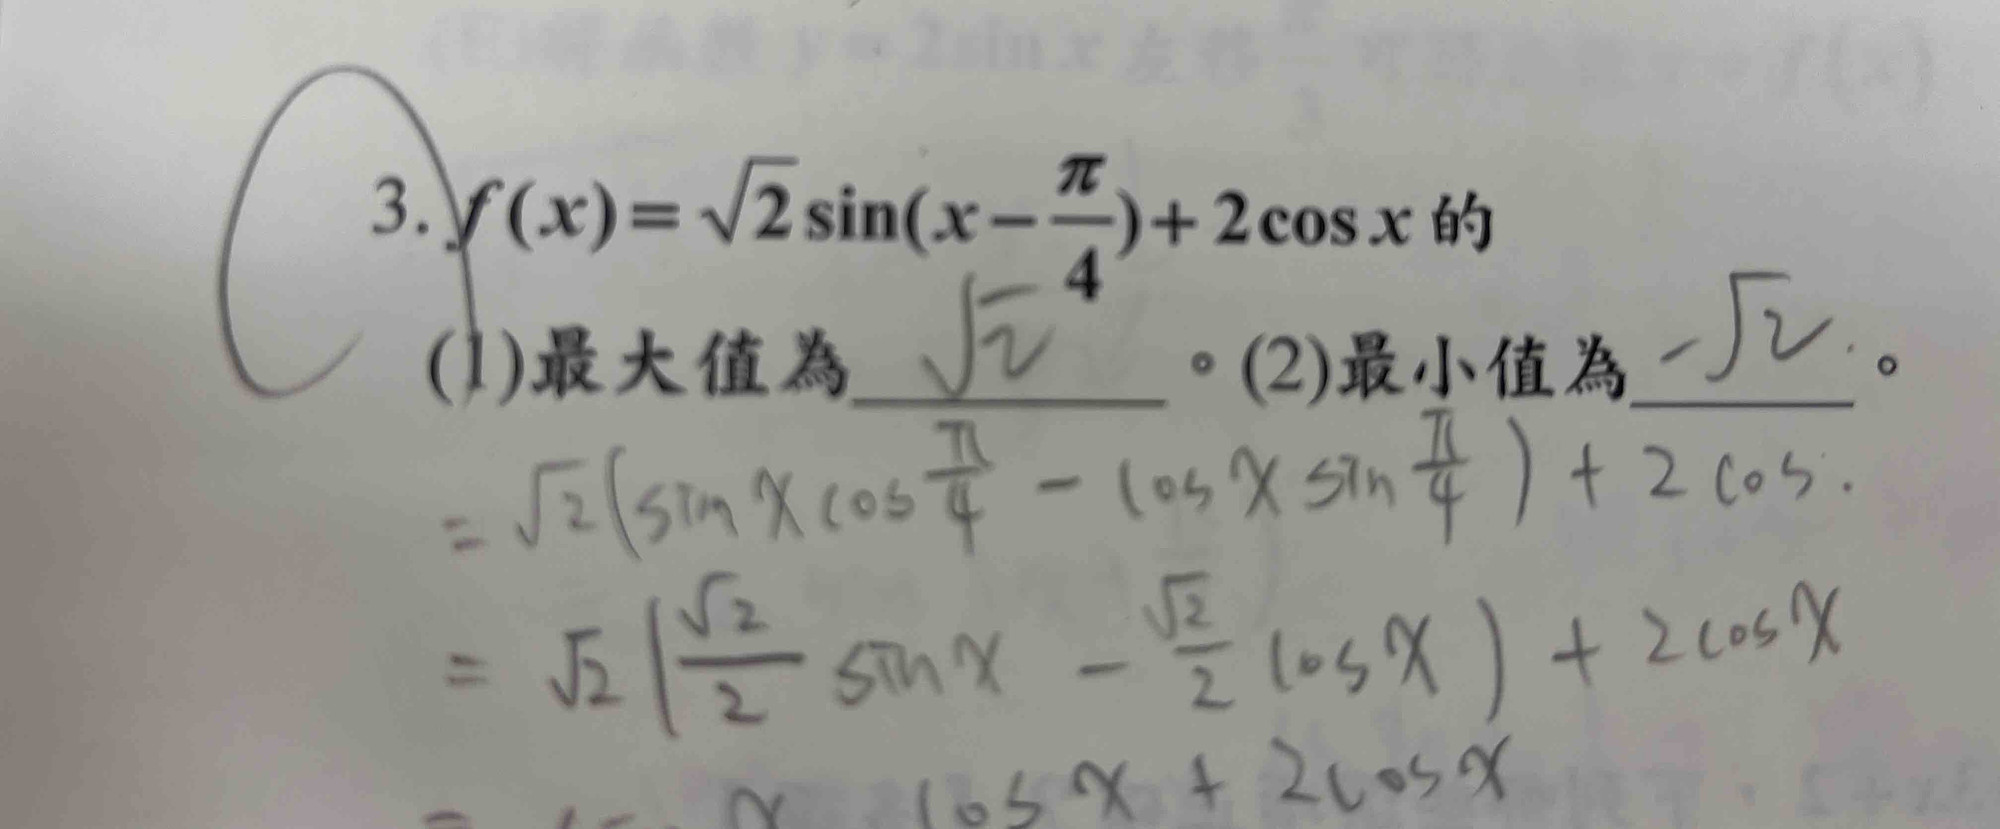 3. f(x)=√2 sin(x−π/4)+2cos x 的
(1)最大值為 √2 。(2)最小值為 -√2 。
= √2(sin x cos π/4 - cos x sin π/4) + 2 cos
= √2(√2/2 sin x - √2/2 cos x) + 2cos x
= x cos x + 2cos x